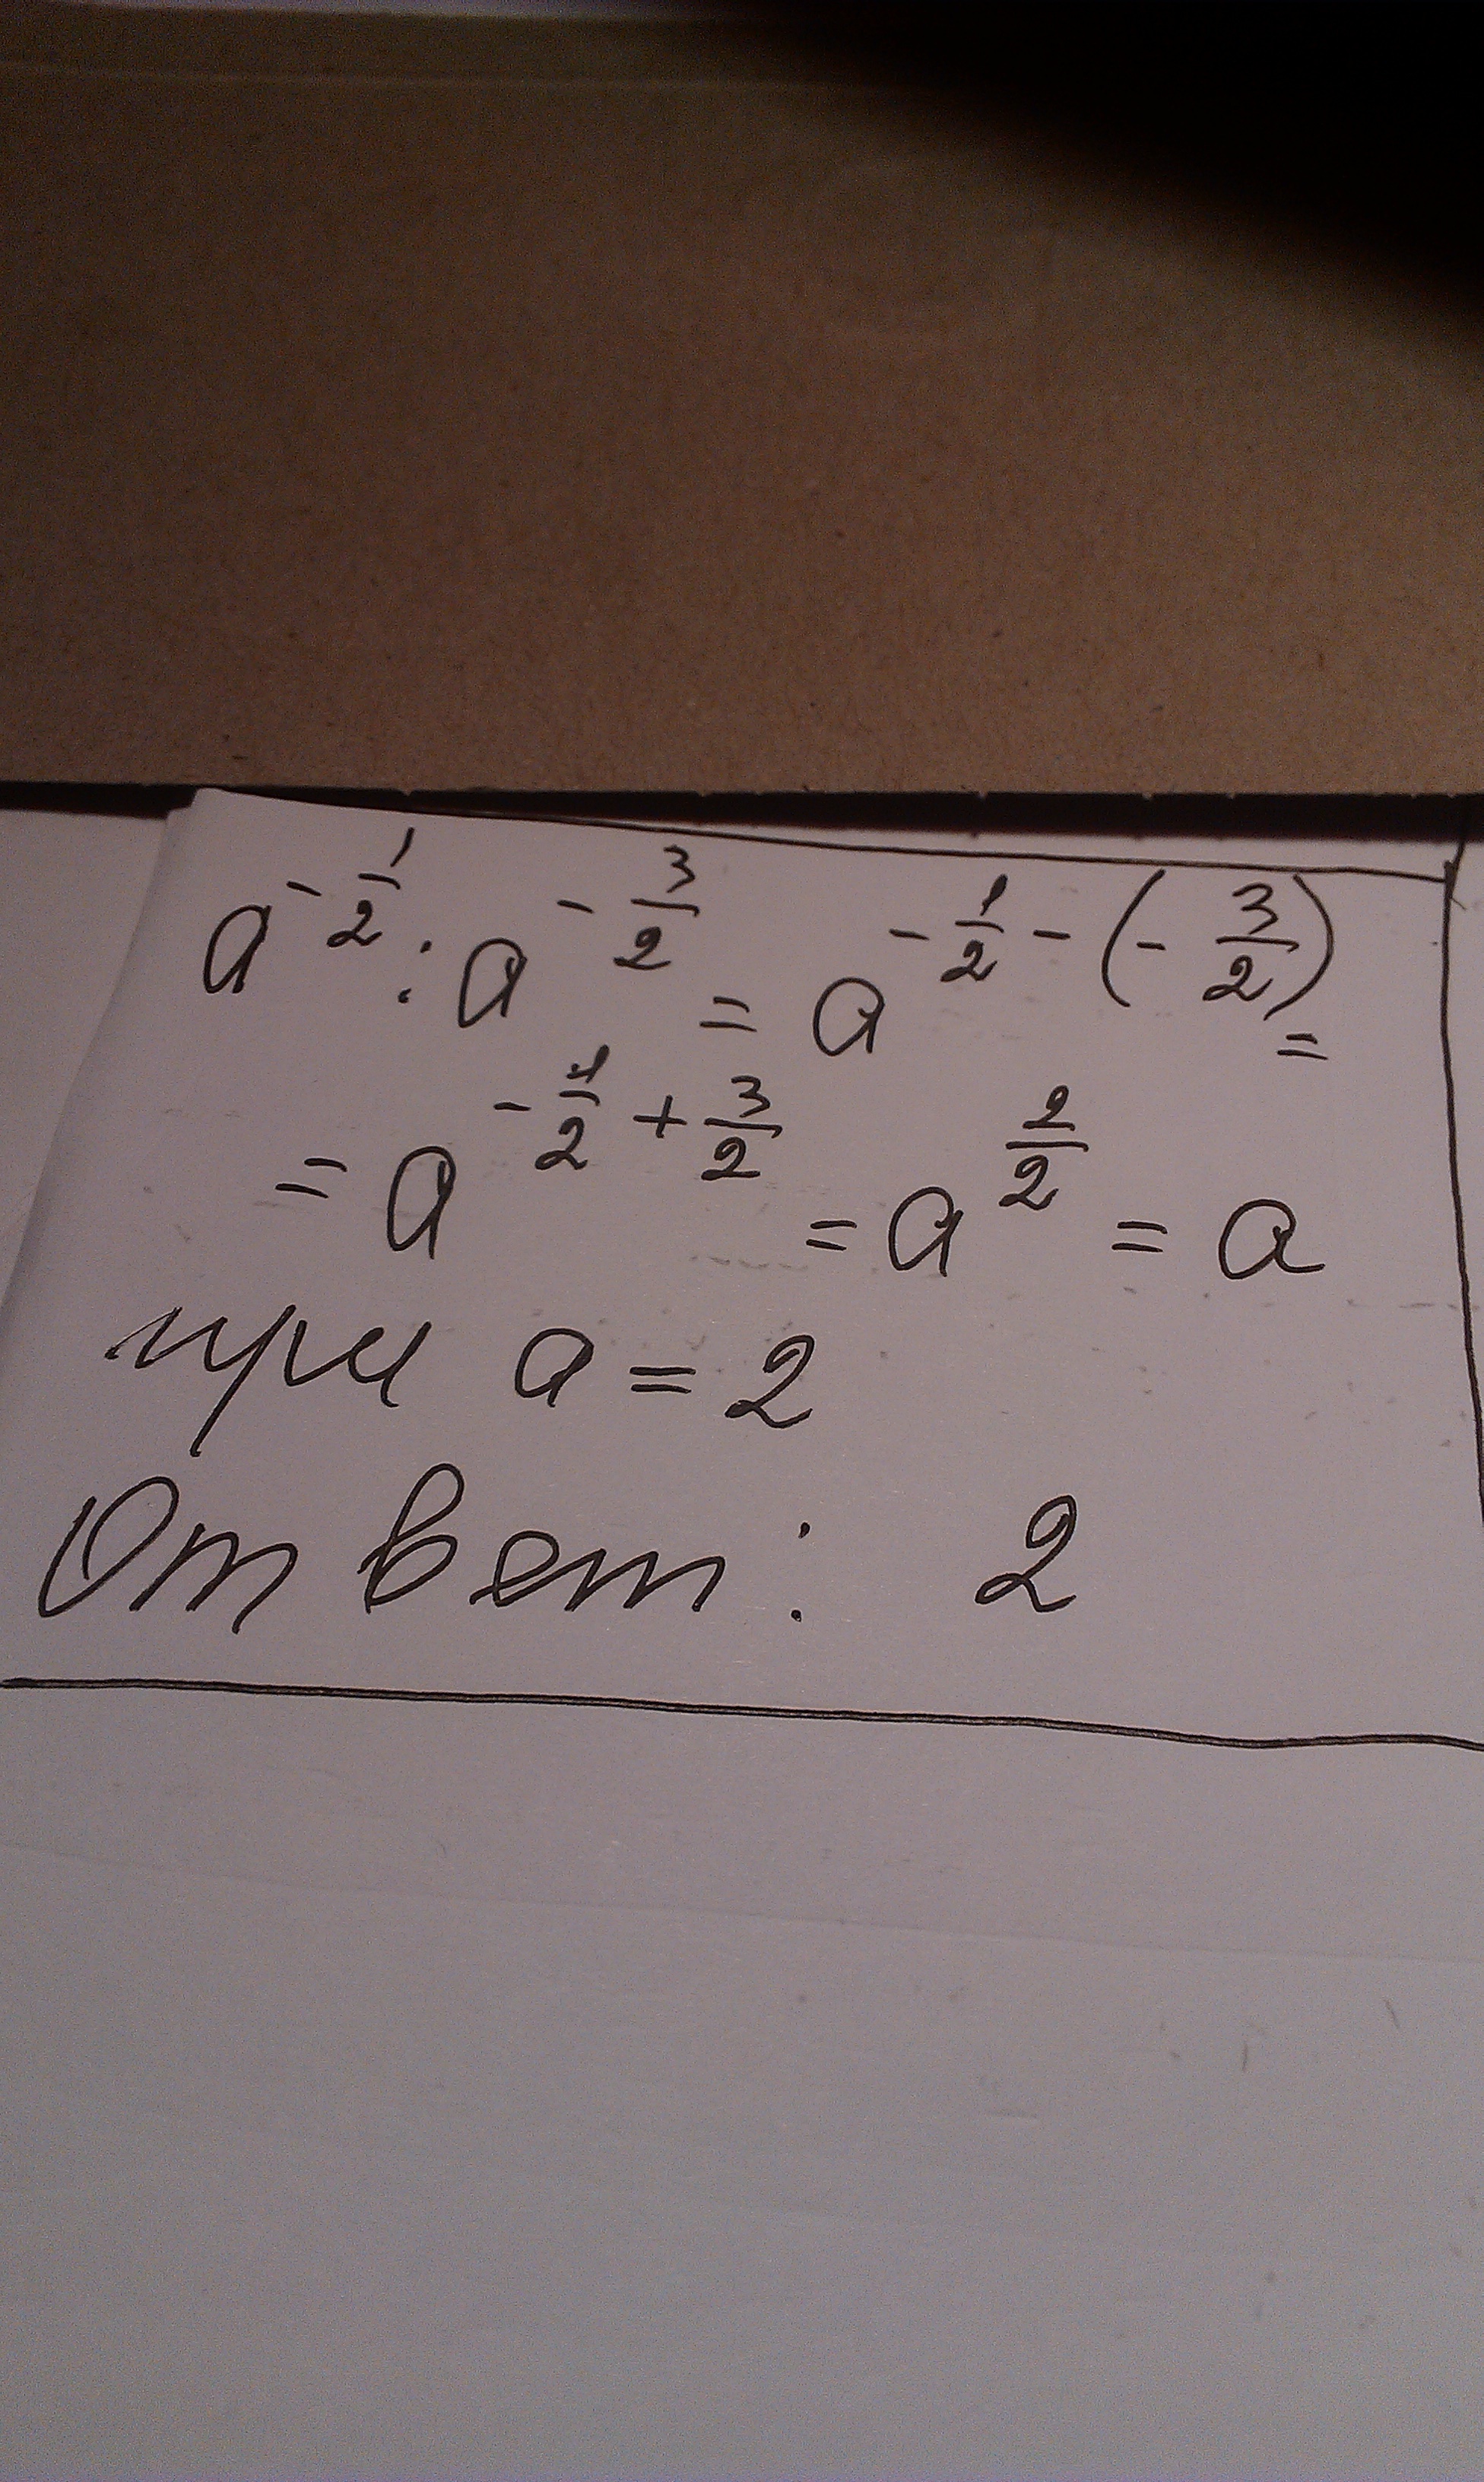 a^{-\frac{1}{2}} : a^{-\frac{3}{2}} = a^{-\frac{1}{2} - (-\frac{3}{2})} =
= a^{-\frac{1}{2} + \frac{3}{2}} = a^{\frac{2}{2}} = a
при a = 2
Ответ: 2